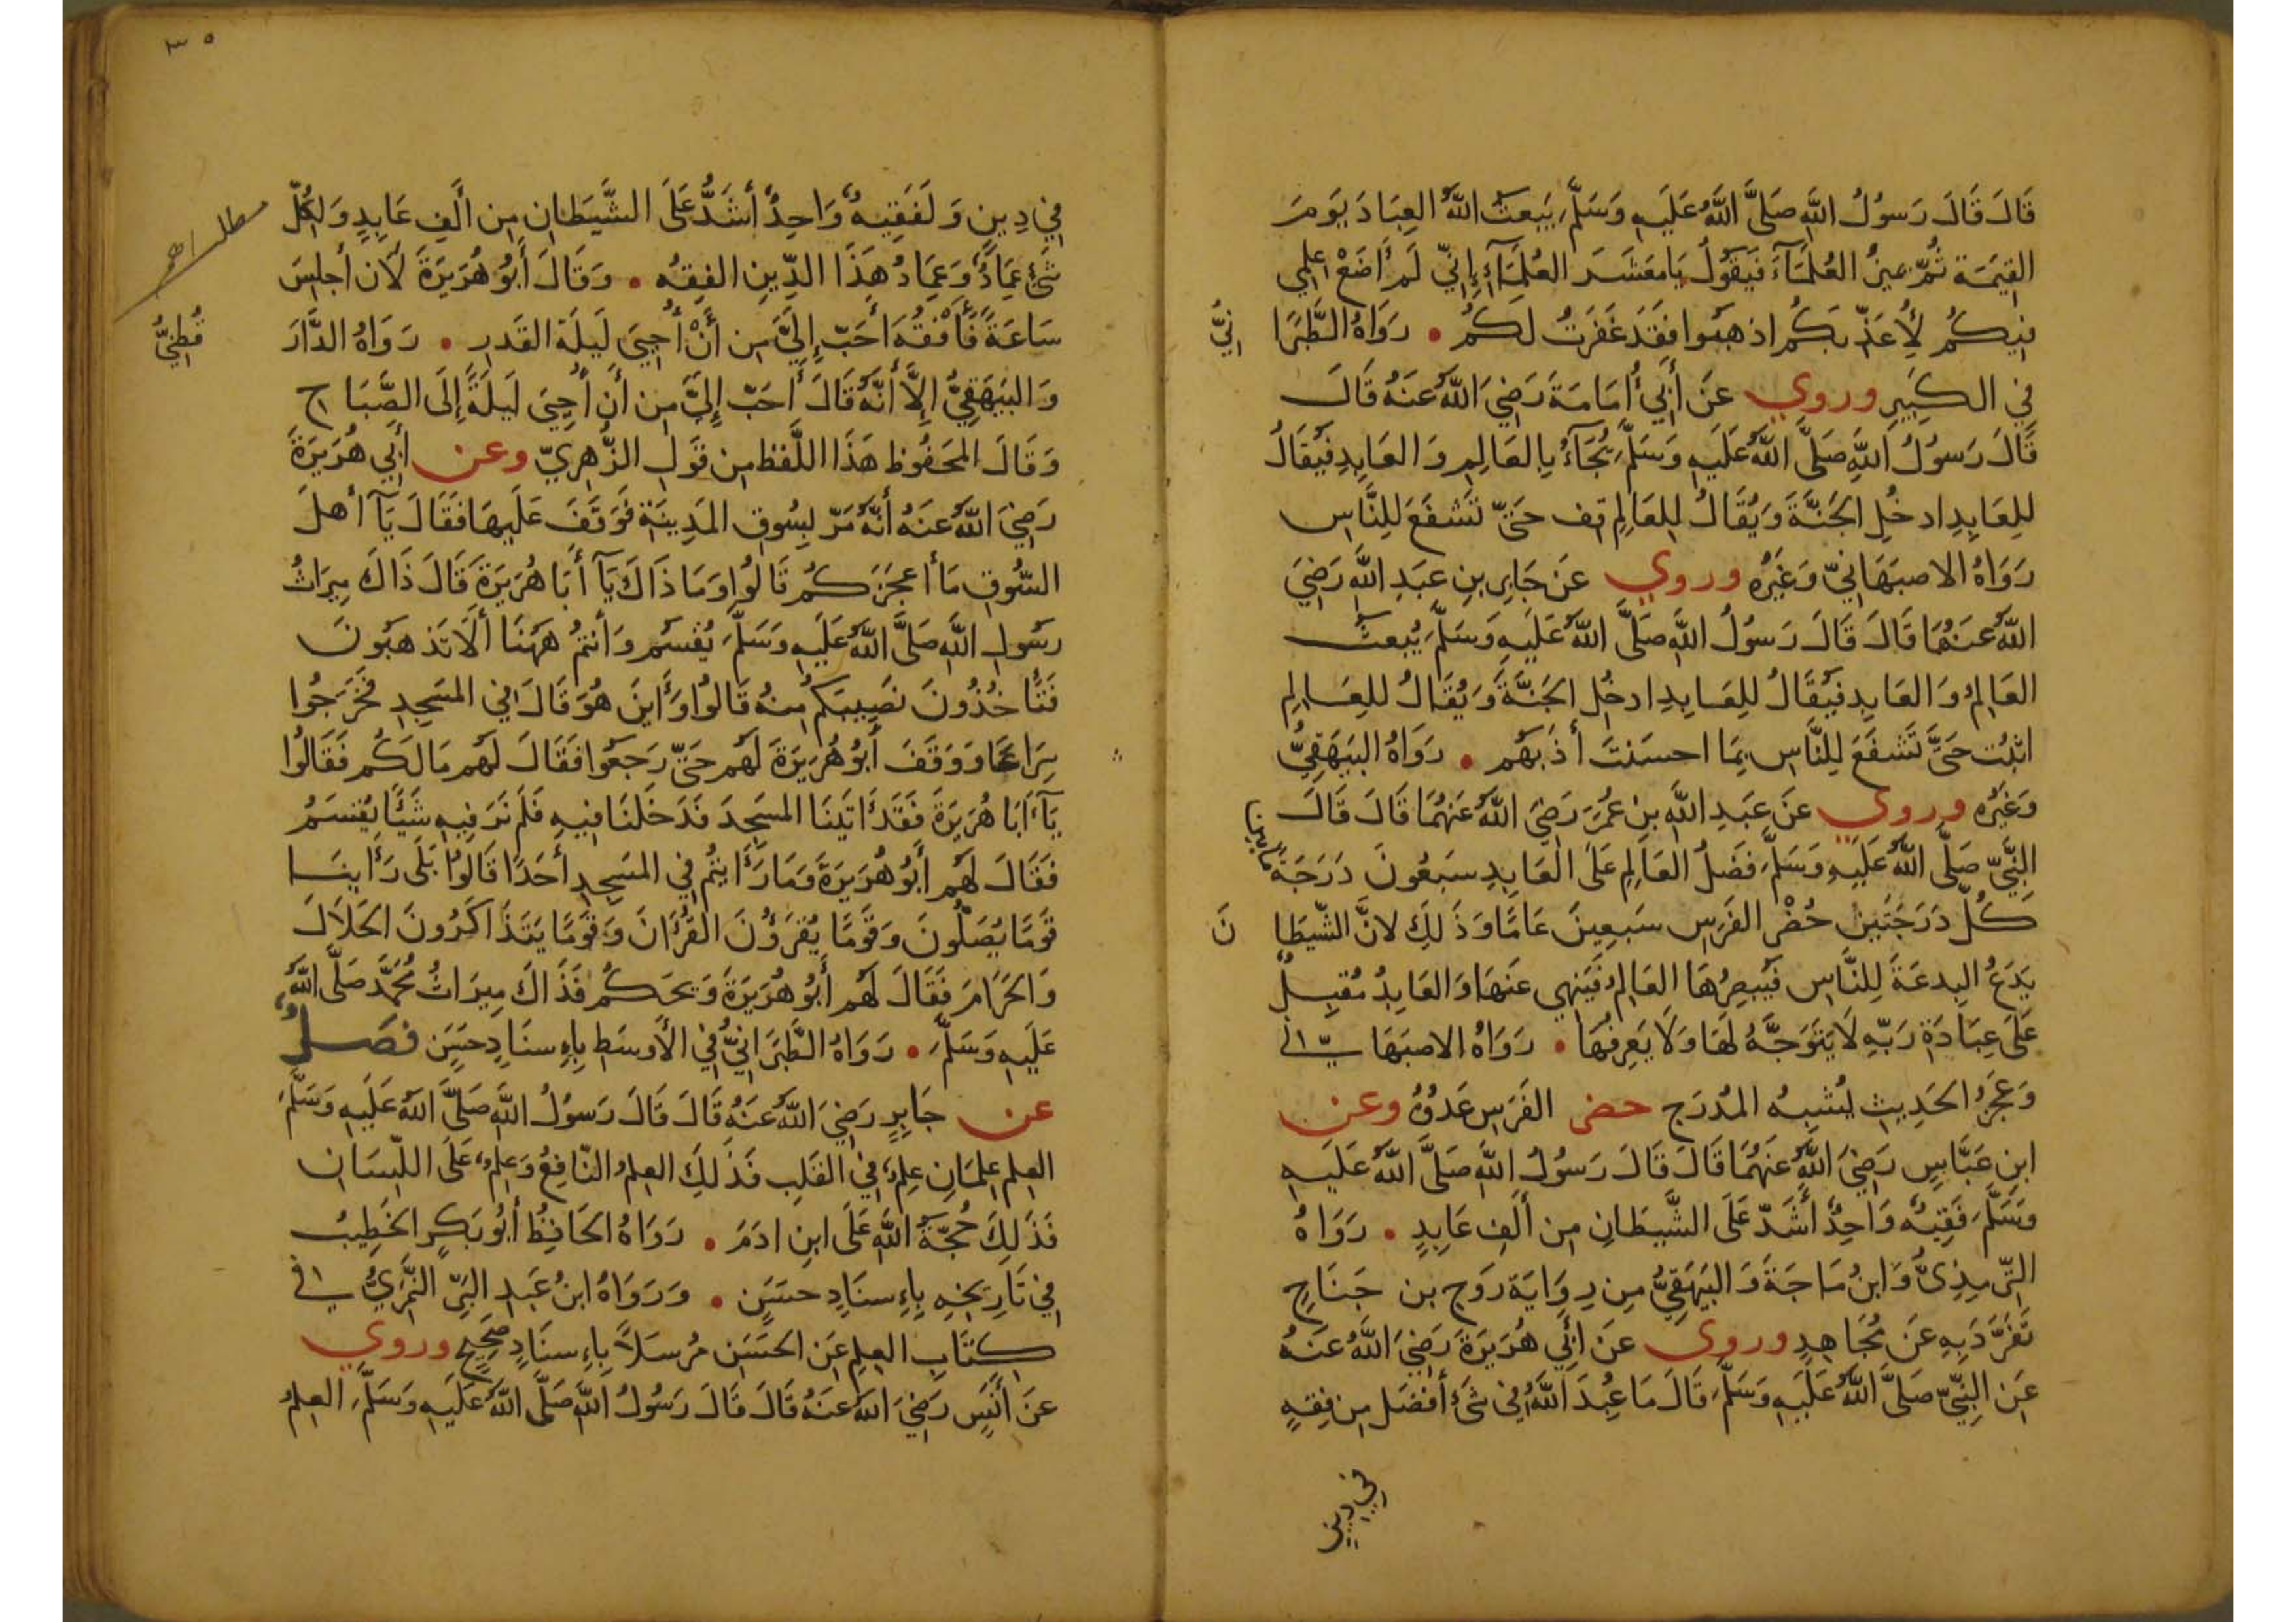 قَالَ قَالَ رَسُولُ اللَّهِ صَلَّى اللَّهُ عَلَيهِ وَسَلَّمَ يَبعَثُ اللَّهُ العِبَادَ يَومَ
القِيمَةِ ثُمَّ يميزُ العُلَمَآءَ فَيَقُولُ يَا مَعشَرَ العُلَمَآءِ إِنِّي لَم أَضَعْ علمي
فِيكُم لِأُعَذِّبَكُم اذهَبُوا فَقَد غَفَرتُ لَكُم • رَوَاهُ الطَّبَرَا
نِيُّ
فِي الكَبِيرِ وروي عَن أَبِي أُمَامَةَ رَضِيَ اللَّهُ عَنهُ قَالَ
قَالَ رَسُولُ اللَّهِ صَلَّى اللَّهُ عَلَيهِ وَسَلَّمَ يُجَآءُ بِالعَالِمِ وَالعَابِدِ فَيُقَالُ
لِلعَابِدِ ادخُلِ الجَنَّةَ وَيُقَالُ لِلعَالِمِ قِف حَتَّى تَشفَعَ لِلنَّاسِ
رَوَاهُ الاصبَهَانِيّ وَغَيرُه وروي عَن جَابِرِ بنِ عَبدِ اللَّهِ رَضِيَ
اللَّهُ عَنهُمَا قَالَ قَالَ رَسُولُ اللَّهِ صَلَّى اللَّهُ عَلَيهِ وَسَلَّمَ يُبعَثُ
العَالِمُ وَالعَابِد فَيُقَالُ لِلعَابِدِ ادخُلِ الجَنَّةَ وَيُقَالُ لِلعَالِمِ
اثبُت حَتَّى تَشفَعَ لِلنَّاسِ بِمَا احسَنتَ أَدَبَهُم • رَوَاهُ البَيهَقِيُّ
وَغَيرُه وروي عَن عَبدِ اللَّهِ بنِ عُمَرَ رَضِيَ اللَّهُ عَنهُمَا قَالَ قَالَ
النَّبِيّ صَلَّى اللَّهُ عَلَيهِ وَسَلَّمَ فَضلُ العَالِمِ عَلَى العَابِدِ سَبعُونَ دَرَجَةً
مَا بين
كُلِّ دَرَجَتَينِ حُضْرُ الفَرَسِ سَبعِينَ عَامًا وَذَلِكَ لانَّ الشَّيطَا
نَ
يَدَعُ البِدعَةَ لِلنَّاسِ فَيُبصِرُهَا العَالِمُ فَيَنهى عَنهَا وَالعَابِدُ مُقبِلٌ
عَلَى عِبَادَةِ رَبِّهِ لَا يَتَوَجَّهُ لَهَا وَلَا يَعرِفُهَا • رَوَاهُ الاصبَهَانيّ
وَعَجزُ الحَدِيثِ يُشبِهُ المُدرَج حضر الفَرَسِ عَدوُهُ وعن
ابنِ عَبَّاسٍ رَضِيَ اللَّهُ عَنهُمَا قَالَ قَالَ رَسُولُ اللَّهِ صَلَّى اللَّهُ عَلَيهِ
وَسَلَّمَ فَقِيهٌ وَاحِدٌ أَشَدّ عَلَى الشَّيطَانِ مِن أَلفِ عَابِدٍ • رَوَاهُ
التِّرمِذِيُّ وَابنُ مَاجَةَ وَالبَيهَقِيُّ مِن رِوَايَةِ رَوحِ بن جَنَاحٍ
تَفَرَّدَ بِهِ عَن مُجَاهِدٍ وروى عَن أَبِي هُرَيرَةَ رَضِيَ اللَّهُ عَنهُ
عَنِ النَّبِيّ صَلَّى اللَّهُ عَلَيهِ وَسَلَّمَ قَالَ مَا عُبِدَ اللَّهُ فِي شَئٍ أَفضَلَ مِن فِقهٍ
فِي دِينٍ
٣٥
فِي دِينٍ وَلَفَقِيهٌ وَاحِدٌ أَشَدُّ عَلَى الشَّيطَانِ مِن أَلفِ عَابِدٍ وَلِكُلِّ
شَئٍ عِمَادٌ وَعِمَادُ هَذَا الدِّينِ الفِقهُ • وَقَالَ أَبُو هُرَيرَةَ لَأَن أَجلِسَ
سَاعَةً فَأَفْقَهُ أَحَبّ إِلَيَّ مِن أَنْ أُحيِيَ لَيلَةَ القَدرِ • رَوَاهُ الدَّارَ
قُطنِيُّ
وَالبَيهَقِيُّ إِلَّا أَنَّهُ قَالَ أَحَبّ إِلَيَّ مِن أَن أُحيِيَ لَيلَةً إِلَى الصَّبَاحِ
وَقَالَ المَحفُوظ هَذَا اللَّفظ مِن قَولِ الزُّهرِيّ وعن أَبِي هُرَيرَةَ
رَضِيَ اللَّهُ عَنهُ أَنَّهُ مَرّ بِسُوقِ المَدِينَةِ فَوَقَفَ عَلَيهَا فَقَالَ يَآ أَهلَ
السُّوقِ مَا أعجَزَكُم قَالُوا وَمَا ذَاكَ يَآ أَبَا هُرَيرَةَ قَالَ ذَاكَ مِيرَاثُ
رَسُولِ اللَّهِ صَلَّى اللَّهُ عَلَيهِ وَسَلَّمَ يُقسَم وَأَنتُم هَهُنَا أَلَا تَذهَبُونَ
فَتَأخُذُونَ نَصِيبَكُم مِنهُ قَالُوا وَأَينَ هُوَ قَالَ فِي المَسجِدِ فَخَرَجُوا
سِرَاعًا وَوَقَفَ أَبُو هُرَيرَةَ لَهُم حَتّى رَجَعُوا فَقَالَ لَهُم مَا لَكُم فَقَالُوا
يَآ أَبَا هُرَيرَةَ فَقَد أَتَينَا المَسجِدَ فَدَخَلنَا فِيهِ فَلَم نَرَ فِيهِ شَيئًا يُقسَمُ
فَقَالَ لَهُم أَبُو هُرَيرَةَ وَمَا رَأَيتُم فِي المَسجِدِ أَحَدًا قَالُوا بَلَى رَأَينَا
قَومًا يُصَلُّونَ وَقَومًا يَقرَؤُنَ القُرآنَ وَقَومًا يَتَذَاكَرُونَ الحَلَالَ
وَالحَرَامَ فَقَالَ لَهُم أَبُو هُرَيرَةَ وَيحَكُم فَذَاكَ مِيرَاثُ مُحَمَّد صَلَّى اللَّهُ
عَلَيهِ وَسَلَّمَ • رَوَاهُ الطَّبَرَانِيُّ فِي الأَوسَطِ بِإِسنَادٍ حَسَنٍ فصلٌ
عن جَابِرٍ رَضِيَ اللَّهُ عَنهُ قَالَ قَالَ رَسُولُ اللَّهِ صَلَّى اللَّهُ عَلَيهِ وَسَلَّمَ
العِلم عِلمَانِ عِلمٌ فِي القَلبِ فَذَلِكَ العِلمُ النَّافِعُ وَعِلمٌ عَلَى اللِّسَانِ
فَذَلِكَ حُجَّةُ اللَّهِ عَلَى ابنِ ادَمَ • رَوَاهُ الحَافِظُ أَبُو بَكرٍ الخَطِيبُ
فِي تَارِيخِهِ بِإِسنَادٍ حَسَنٍ • وَرَوَاهُ ابنُ عَبدِ البَرِّ النَّمَرِيُّ في
كِتَابِ العِلمِ عَنِ الحَسَنِ مُرسَلاً بِإِسنَادٍ صَحِيحٍ وروي
عَن أَنَسٍ رَضِيَ اللَّهُ عَنهُ قَالَ قَالَ رَسُولُ اللَّهِ صَلَّى اللَّهُ عَلَيهِ وَسَلَّمَ العِلمُ